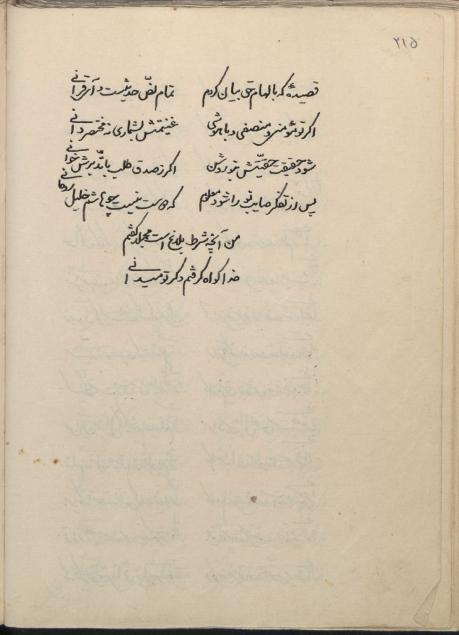 ۲۱۵
قصیدهٔ که بالهام حق بیان کردم تمام نصّ حدیثست و آی قرآنی
اگر تو مؤمنی و منصفی و باهوشی غنیمتش بشماری نه مختصر دانی
شود حقیقت حقیّتش بتو روشن اگر ز صدق طلب با تدبرش خوانی
پس از تفکر صایب تو را شود معلوم که نیست چو هاشم خلیل
من آنچه شرط بلاغ است مجملا گفتم
خدا گواه گرفتم دگر تو میدانی